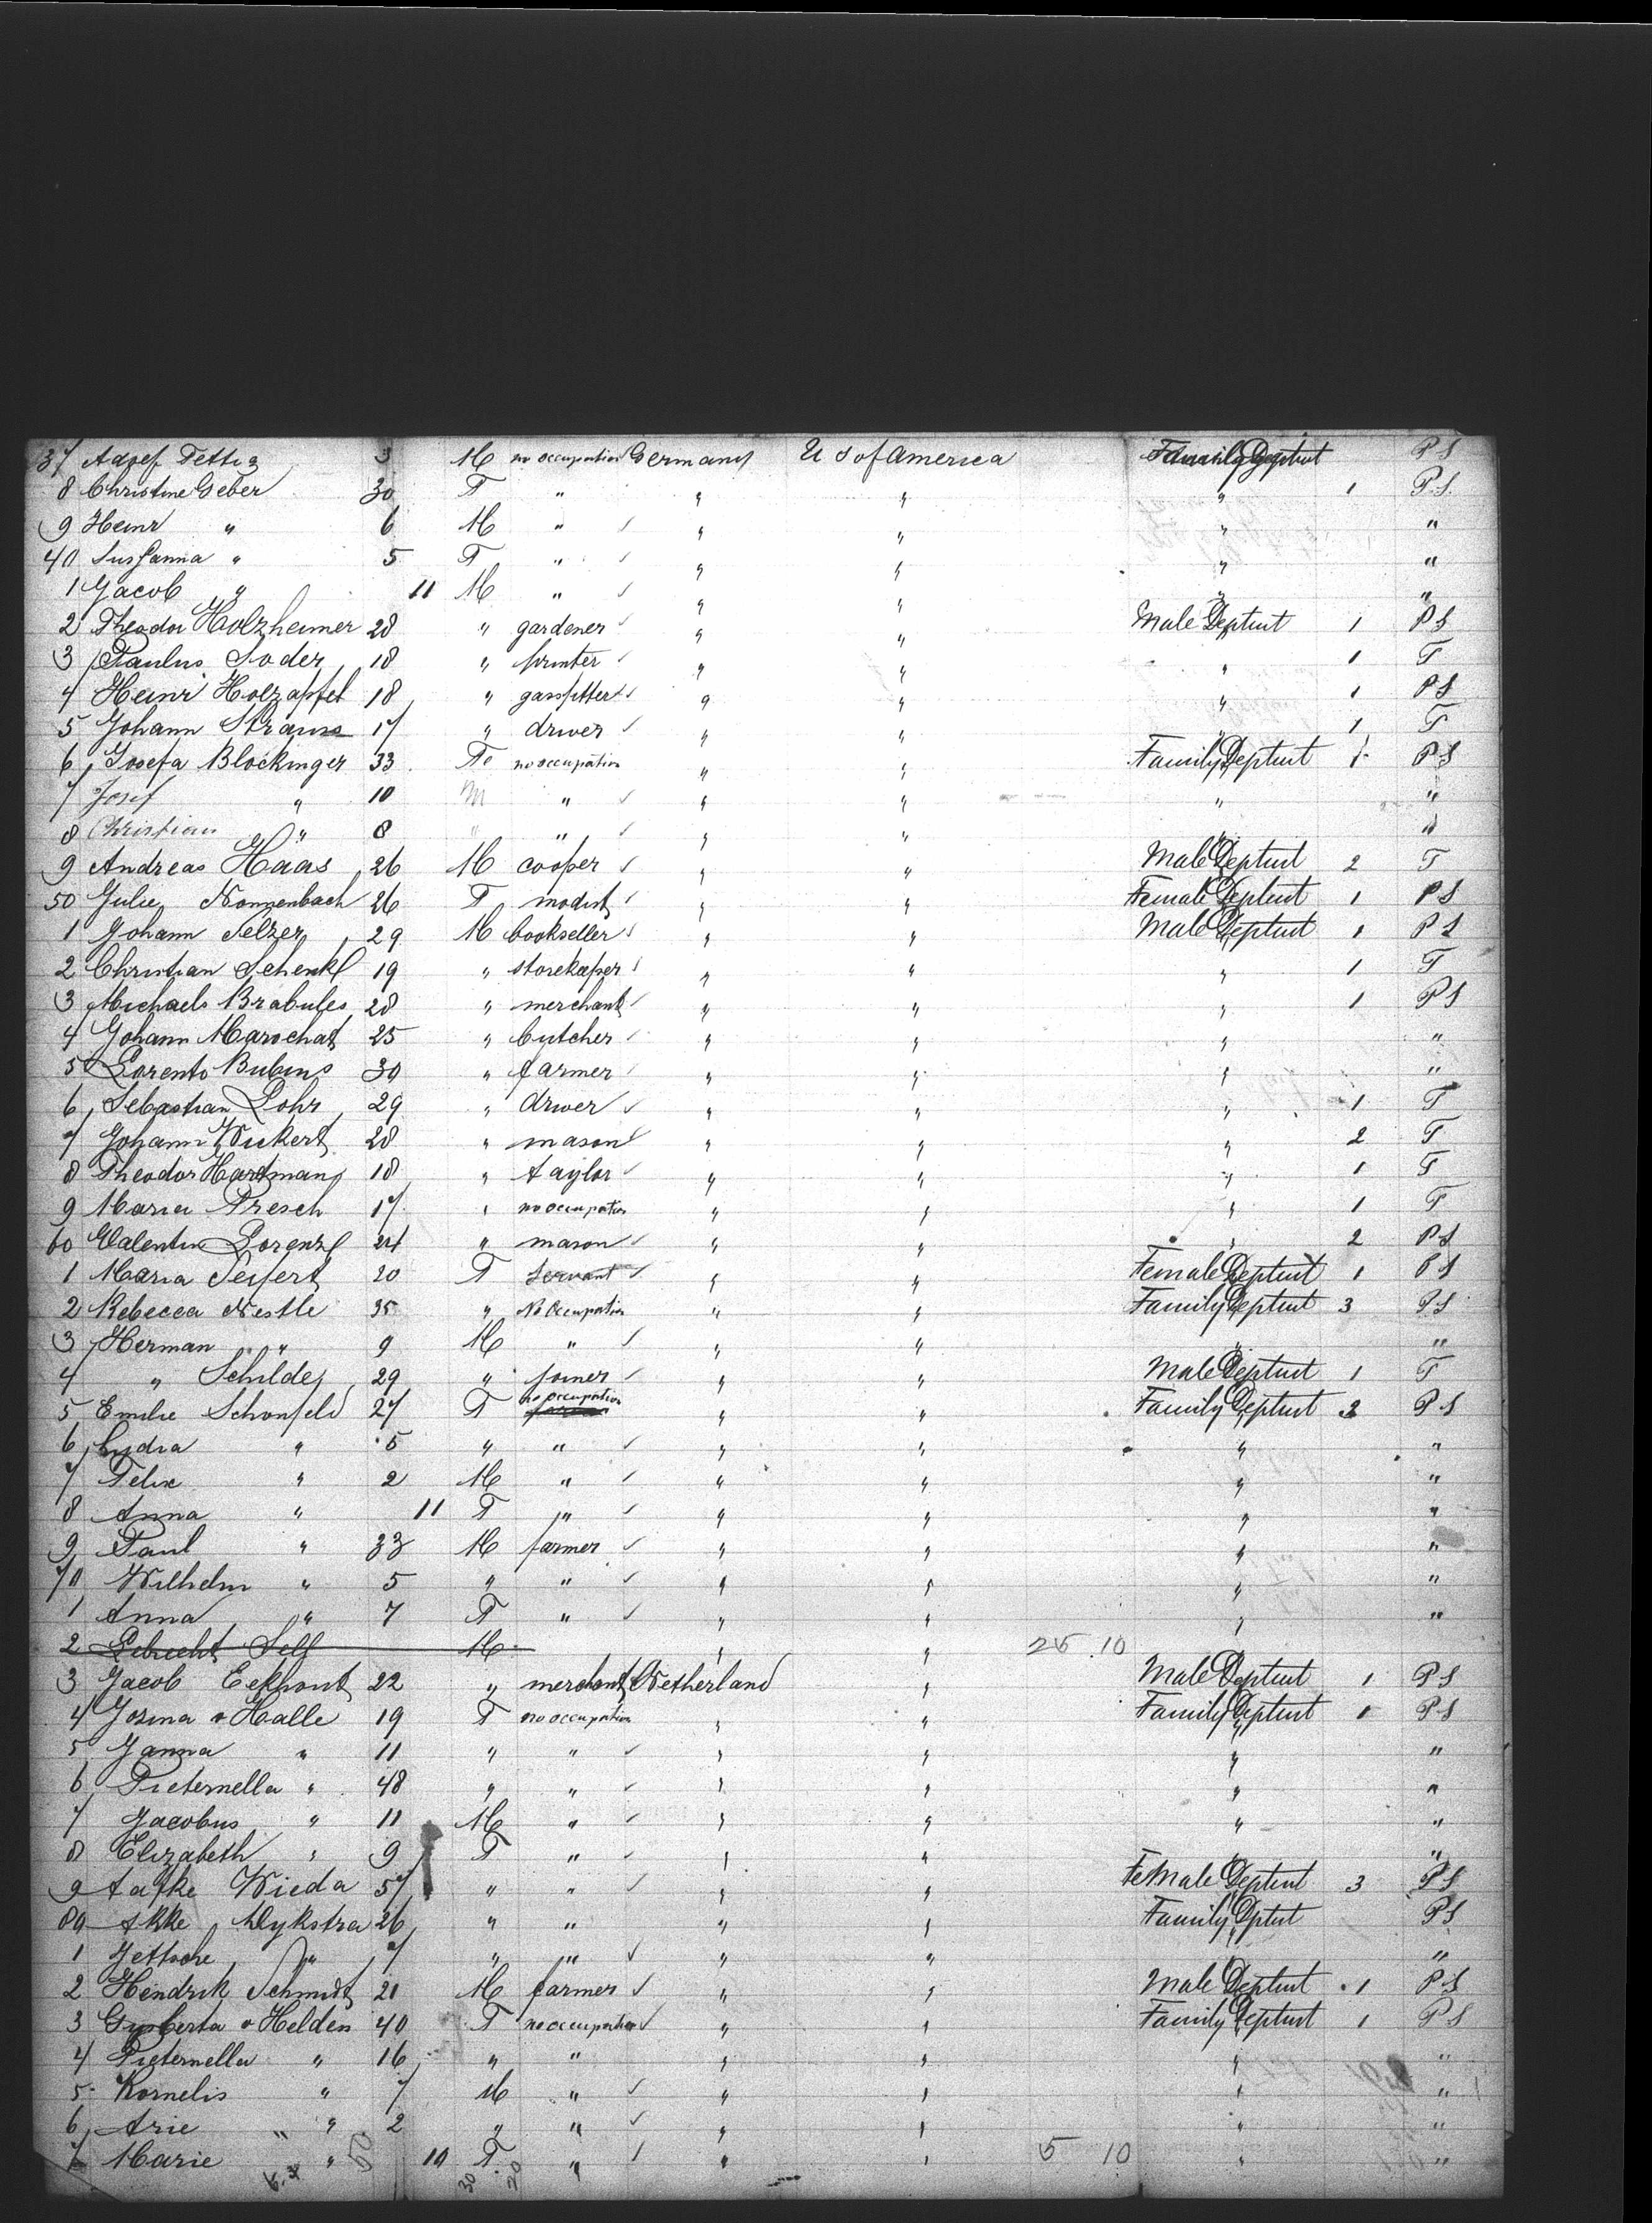 37 Adolf Fettig 3 M no occupation Germany U S of America Family Deptmt P S
8 Christine Geber 30 F " " " " 1 P.S.
9 Heinr " 6 M " " " " "
40 Susanna " 5 F " " " " "
1 Jacob " 11 M " " " " "
2 Theodor Holzheimer 28 " gardener " " Male Deptmt 1 P S
3 Paulus Soder 18 " printer " " " 1 F
4 Heinr Holzapfel 18 " gassfitter " " " 1 P S
5 Johann Strauss 17 " driver " " " 1 F
6 Josefa Blockinger 33 Fe no occupation " " Family Deptmt 1 P S
7 Josef " 10 M " " " " "
8 Christian " 8 " " " " " "
9 Andreas Haas 26 M cooper " " Male Deptmt 2 F
50 Julie Nonnenbach 26 F modist " " Female Deptmt 1 P S
1 Johann Selzer 29 M bookseller " " Male Deptmt 1 P S
2 Christian Schenkl 19 " storekeeper " " " 1 F
3 Michaels Brabules 28 " merchant " " " 1 P S
4 Johann Marochat 25 " butcher " " " "
5 Lorento Bubens 30 " farmer " " " "
6 Sebastian Lohr 29 " driver " " " 1 F
7 Johann Wickert 28 " mason " " " 2 F
8 Theodor Hartman 18 " taylor " " " 1 F
9 Maria Presch 17 " no occupation " " " 1 F
60 Valentin Lorenz 24 " mason " " " 2 P S
1 Maria Seifert 20 F Servant " " Female Deptmt 1 P S
2 Rebecca Nestle 35 " No Occupation " " Family Deptmt 3 P S
3 Herman " 9 M " " " " "
4 " Schilde 29 " joiner " " Male Deptmt 1 F
5 Emilie Schonfeld 27 F no occupation " " Family Deptmt 2 P S
6 Lydia " 5 " " " " " "
7 Felix " 2 M " " " " "
8 Anna " 11 F " " " " "
9 Paul " 33 M farmer " " " "
70 Wilhelm " 5 " " " " " "
1 Anna " 7 F " " " " "
2 Lebrecht Self M " " 25 10
3 Jacob Eekhout 22 " merchant Netherland " Male Deptmt 1 P S
4 Josina v Halle 19 F no occupation " " Family Deptmt 1 P S
5 Janna " 11 " " " " " "
6 Pieternella " 48 " " " " " "
7 Jacobus " 11 M " " " " "
8 Elizabeth " 9 F " " " " "
9 Aafke Wieda 57 " " " " Female Deptmt 3 P S
80 Akke Dykstra 26 " " " " Family Dptmt P S
1 Jettsche " 7 " " " " " "
2 Hendrik Schmidt 21 M farmer " " Male Deptmt 1 P S
3 Gysberta v Helden 40 F no occupation " " Family Deptmt 1 P S
4 Pieternella " 16 " " " " " "
5 Kornelis " 7 M " " " " "
6 Arie " 2 " " " " " "
7 Marie " 10 F " " " 5 10 " "
30 20